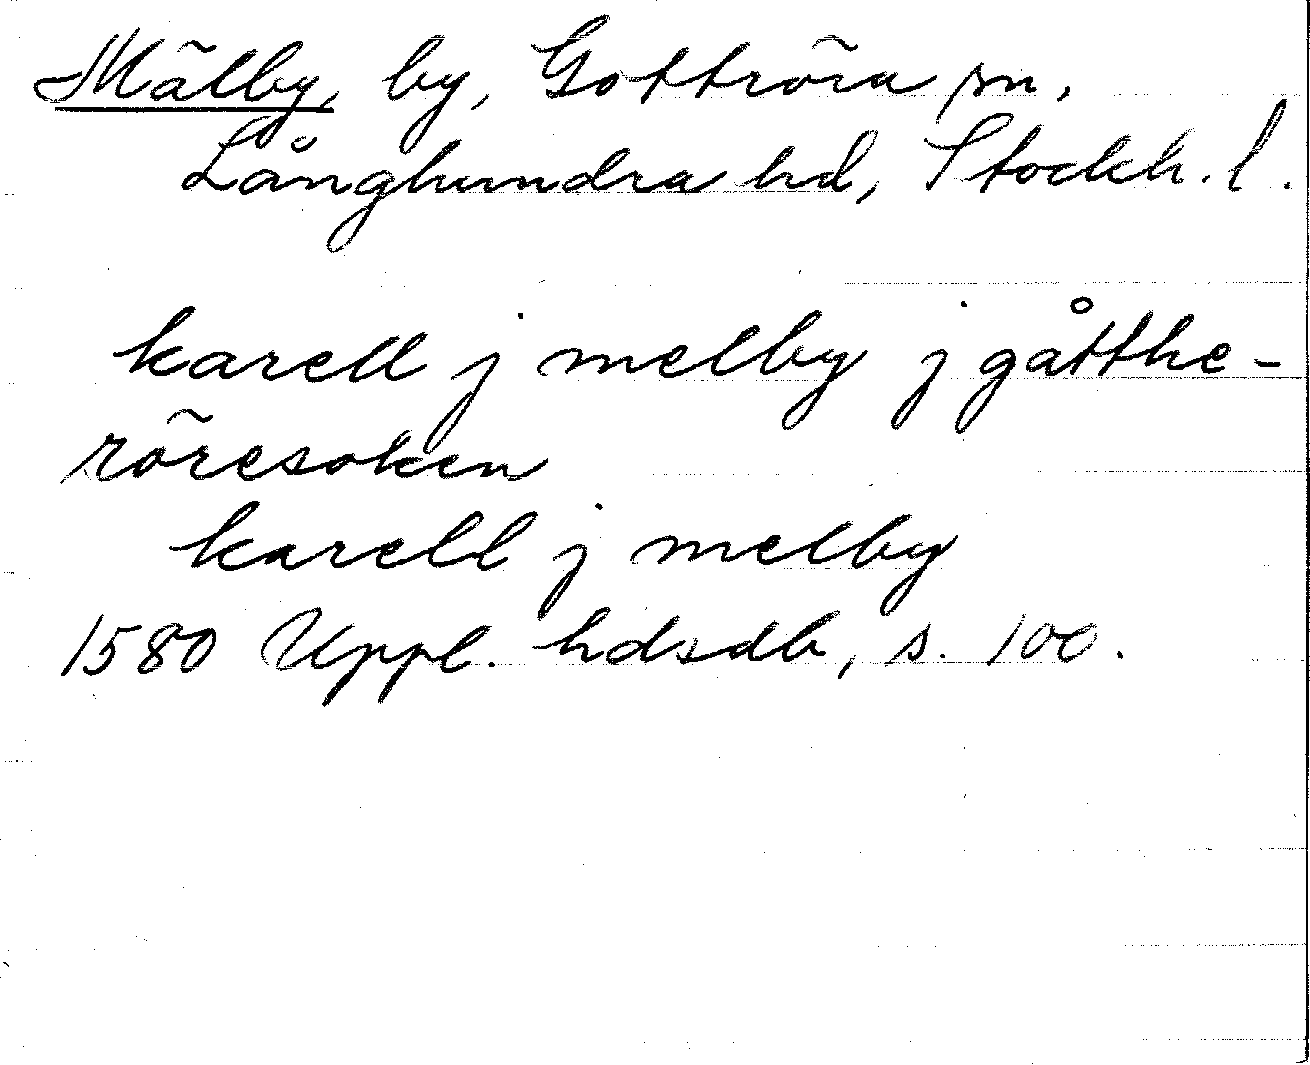 Mälby, by, Gottröra sn,
Långhundra hd, Stockh. l.
karell j melby j gåtthe-
röresoken
karell j melby
1580 Uppl. hdsdb, s. 100.